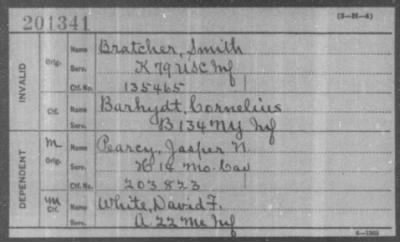 201341
(3-21-4)
INVALID
Orig.
Name Bratcher, Smith
Serv. K 79 USC Inf
Ctf. No. 135465
Ctf.
Name Barhydt, Cornelius
Serv. B 134 NY Inf
DEPENDENT
M Orig.
Name Pearcy, Jasper N.
Serv. H 14 Mo. Cav
Ctf. No. 203823
M Ctf.
Name White, David F.
Serv. A 22 Me Inf